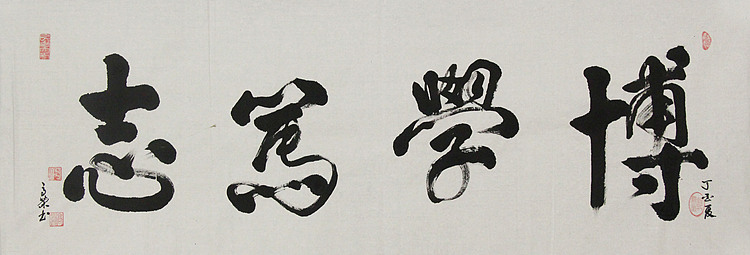 博學篤志
丁亥夏